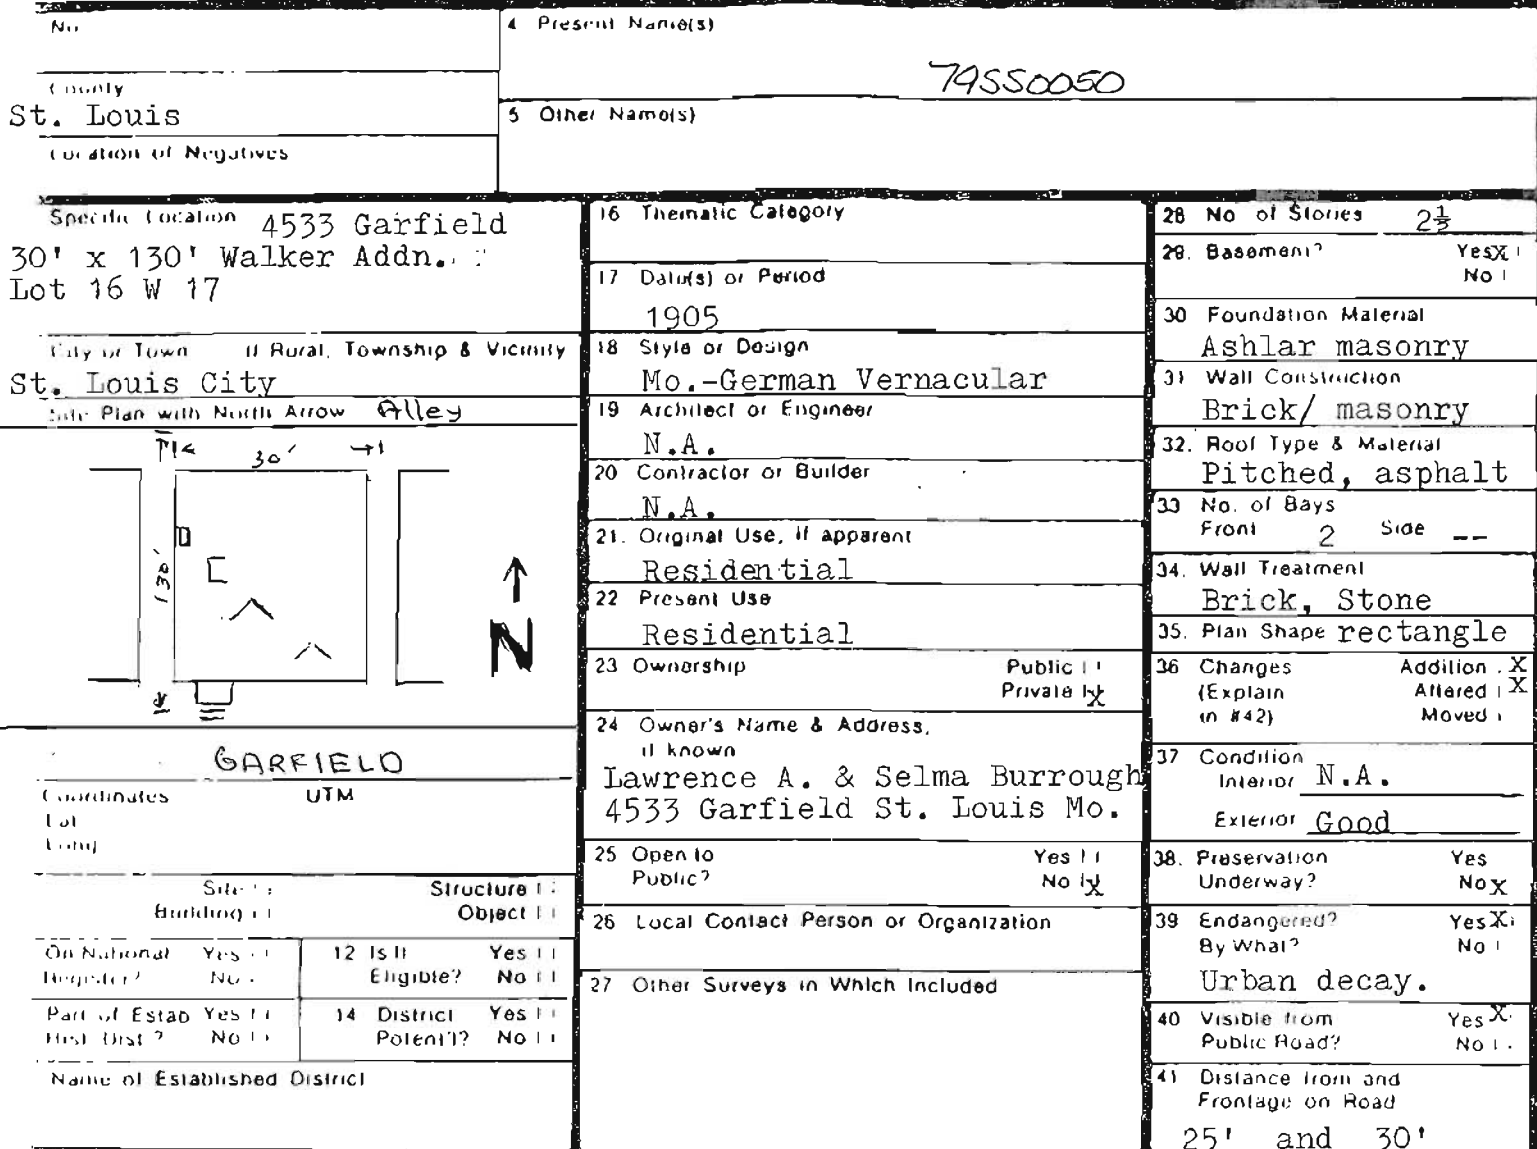 No.
4 Present Name(s)
79SS0050
County
St. Louis
5 Other Name(s)
Location of Negatives
Specific Location 4533 Garfield
30' x 130' Walker Addn.
Lot 16 W 17
City or Town If Rural, Township & Vicinity
St. Louis City
Site Plan with North Arrow Alley
30'
130'
N
GARFIELD
Coordinates UTM
Lat
Long
Site Structure
Building Object
On National Register? Yes No
12 Is It Eligible? Yes No
Part of Estab Hist Dist? Yes No
14 District Potent'l? Yes No
Name of Established District
16 Thematic Category
17 Date(s) or Period
1905
18 Style or Design
Mo.-German Vernacular
19 Architect or Engineer
N.A.
20 Contractor or Builder
N.A.
21. Original Use, if apparent
Residential
22 Present Use
Residential
23 Ownership Public
Private X
24 Owner's Name & Address,
if known
Lawrence A. & Selma Burrough
4533 Garfield St. Louis Mo.
25 Open to Yes
Public? No X
26 Local Contact Person or Organization
27 Other Surveys in Which Included
28 No of Stories 2½
29. Basement? Yes X
No
30 Foundation Material
Ashlar masonry
31 Wall Construction
Brick/ masonry
32. Roof Type & Material
Pitched, asphalt
33 No. of Bays
Front 2 Side --
34. Wall Treatment
Brick, Stone
35. Plan Shape rectangle
36 Changes Addition X
(Explain Altered X
in #42) Moved
37 Condition
Interior N.A.
Exterior Good
38. Preservation Yes
Underway? No X
39 Endangered? Yes X
By What? No
Urban decay.
40 Visible from Yes X
Public Road? No
41 Distance from and
Frontage on Road
25' and 30'